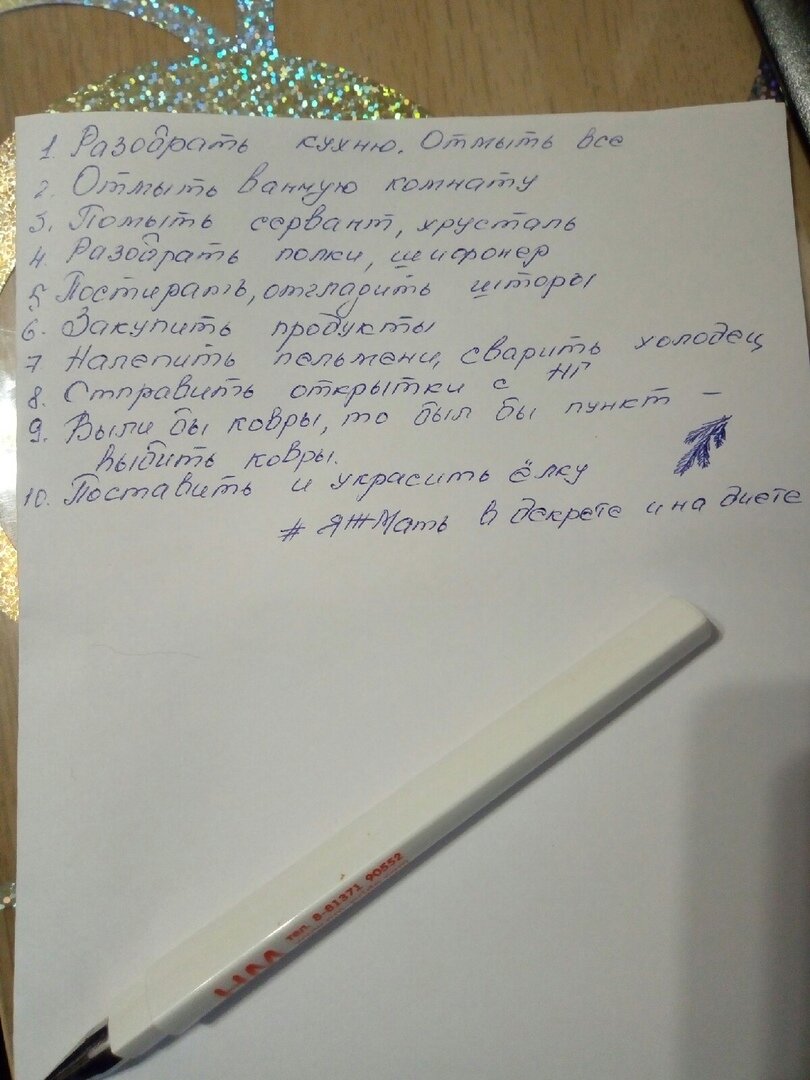 1. Разобрать кухню. Отмыть все
2. Отмыть ванную комнату
3. Помыть сервант, хрусталь
4. Разобрать полки, шифонер
5. Постирать, отгладить шторы
6. Закупить продукты
7. Налепить пельмени, сварить холодец
8. Отправить открытки с НГ
9. Были бы ковры, то был бы пункт -
выбить ковры.
10. Поставить и украсить ёлку
# ЯЖМать в декрете и на диете
тел. 8-81371 90552